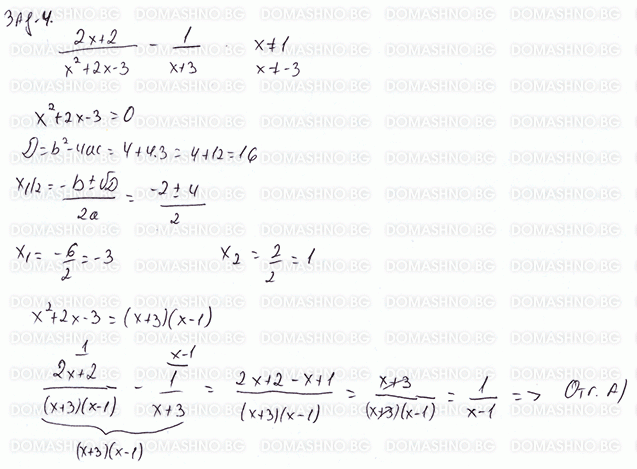 Зад. 4.
(2x+2)/(x²+2x-3) - 1/(x+3)   x≠1
x≠-3
x²+2x-3=0
D=b²-4ac=4+4.3=4+12=16
x₁/₂=(-b±√D)/2a=(-2±4)/2
x₁=-6/2=-3   x₂=2/2=1
x²+2x-3=(x+3)(x-1)
1   x-1
(2x+2)/((x+3)(x-1)) - 1/(x+3) = (2x+2-x+1)/((x+3)(x-1)) = (x+3)/((x+3)(x-1)) = 1/(x-1) => Отг. А)
(x+3)(x-1)
DOMASHNO.BG